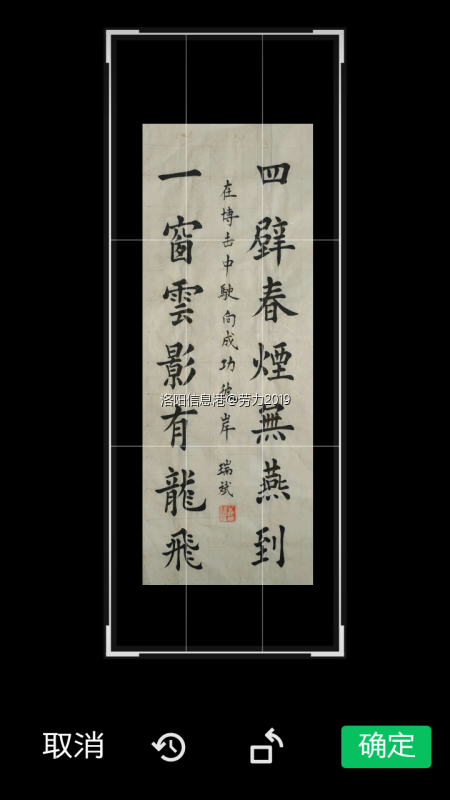 四壁春煙無燕到
在搏击中駛向成功彼岸 瑞斌
一窗雲影有龍飛
洛阳信息港@劳力2019
取消
确定